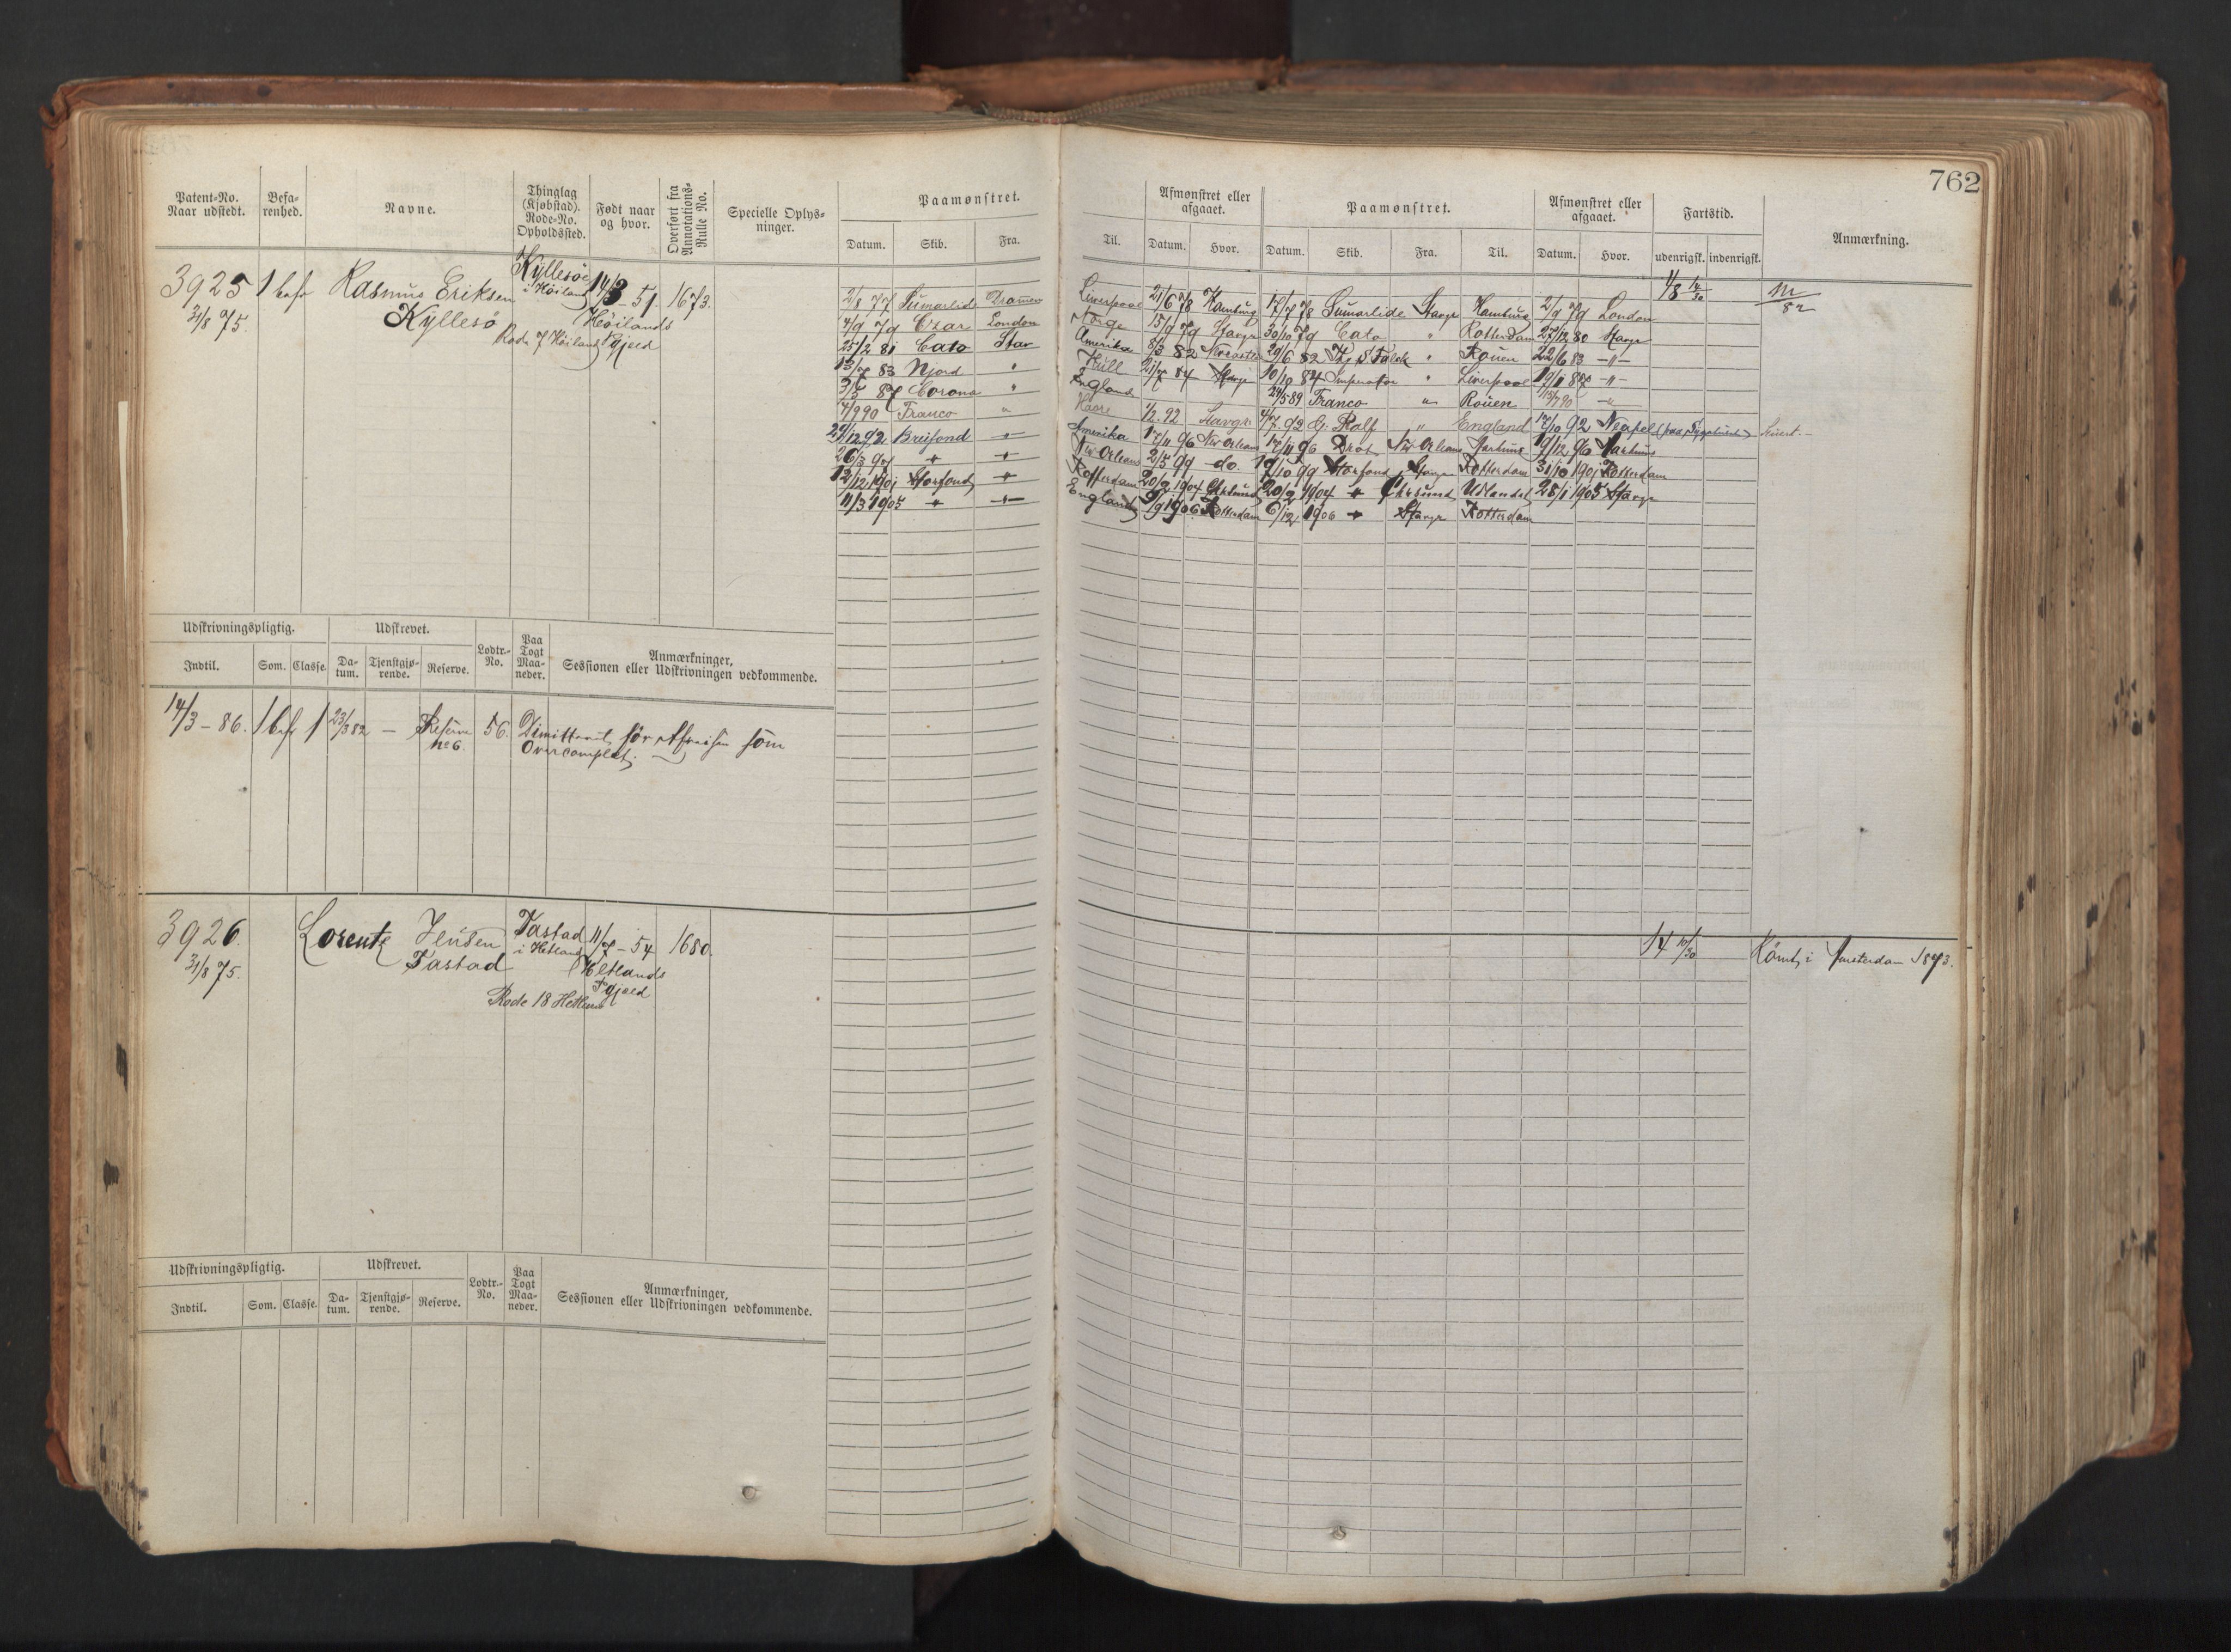 762
Patent-No.
Naar udstedt.
Befa-
renhed.
Navne.
Thinglag
(Kjøbstad).
Rode-No.
Opholdssted.
Født naar
og hvor.
Overført fra
Annotations-
Rulle No.
Specielle Oplys-
ninger.
Paamønstret.
Datum. Skib. Fra.
Til.
Afmønstret eller
afgaaet.
Datum. Hvor.
Paamønstret.
Datum. Skib. Fra. Til.
Afmønstret eller
afgaaet.
Datum. Hvor.
Fartstid.
udenrigsk. indenrigsk.
Anmærkning.
3925
31/8 75.
1 bef
Rasmus Eriksen
Kyllesø
Kyllesøe
i Høiland
Rode 7 Høiland
14/3 - 51.
Høilands
Pgjeld
1673.
2/8 77 Sumarlide Drammen Liverpool 21/6 78 Hamburg 17/7 78 Sumarlide Stavgr Hamburg 2/9 79 London
4/9 79 Czar London Norge 15/9 79 Stavgr 30/10 79 Cato " Rotterdam 27/12 80 Stavgr
25/2 81 Cato Stav Amerika 8/3 82 Newcastle 29/6 82 Thj S Falck " Rouen 22/6 83 -"-
13/7 83 Njord " Hull 21/7 84 Stavgr 10/10 84 Imperator " Liverpool 19/1 87 -"-
2/5 87 Corona " England 24/5 89 Franco " Rouen -"-
4/9 90 Franco " Havre 1/2 92 Stavgr. 4/7 92 G. Rolf " England 17/10 92 Neapel
29/12 92 Breifond -"- Amerika 17/11 96 New Orleans 17/11 96 Drot New Orleans Aarhuus 19/12 96 Aarhuus
26/3 97 " " New Orleans 2/5 99 do. Storfond Stavgr Rotterdam 31/10 1901 Rotterdam
12/12 1901 Storfond " Rotterdam 20/2 1904 Chrsund 20/2 1904 " Chrsund Udlandet 28/1 1905 Stavgr
11/3 1905 " -"- England 9/9 1906 Rotterdam 6/12 1906 " Stavgr Rotterdam
48 14/30
M
82
Udskrivningspligtig.
Indtil. Som. Classe.
Udskrevet.
Da-
tum.
Tjenstgjø-
rende.
Reserve.
Lodtr.-
No.
Paa
Togt
Maa-
neder.
Anmærkninger,
Sessionen eller Udskrivningen vedkommende.
14/3 - 86. 1 bef 1 23/3 82 — Reserve
No 6.
56.
Dimitteret før Afreisen som
Overcomplet.
3926.
31/8 75.
Lorentz Jensen
Tastad
Tastad
i Hetland
Rode 18 Hetland
11/7 - 54
Hetlands
Pgjeld
1680.
14 10/30
Römt i Amsterdam 1873.
Udskrivningspligtig.
Indtil. Som. Classe.
Udskrevet.
Da-
tum.
Tjenstgjø-
rende.
Reserve.
Lodtr.-
No.
Paa
Togt
Maa-
neder.
Anmærkninger,
Sessionen eller Udskrivningen vedkommende.